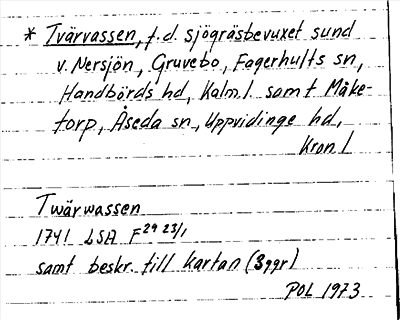 * Tvärvassen, f.d. sjögräsbevuxet sund
v. Nersjön, Gruvebo, Fagerhults sn,
Handbörds hd, Kalm.l samt Måke-
torp, Åseda sn, Uppvidinge hd,
Kron l
Twärwassen
1741 LSA F29 23/1
samt beskr. till kartan (3ggr)
POL 1973